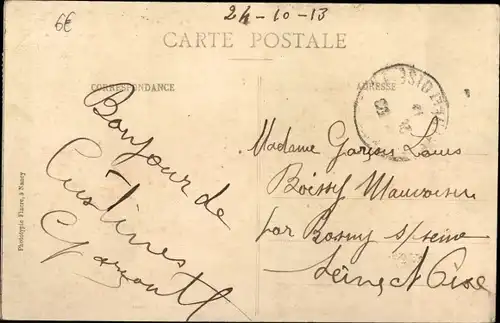 6€
24-10-13
CARTE POSTALE
CORRESPONDANCE
ADRESSE
Bonjour de
Custines
Madame Garçon Louis
Boissy Mauvoisin
par Rosny s/seine
Seine & Oise
Phototypie Flacre, à Nancy